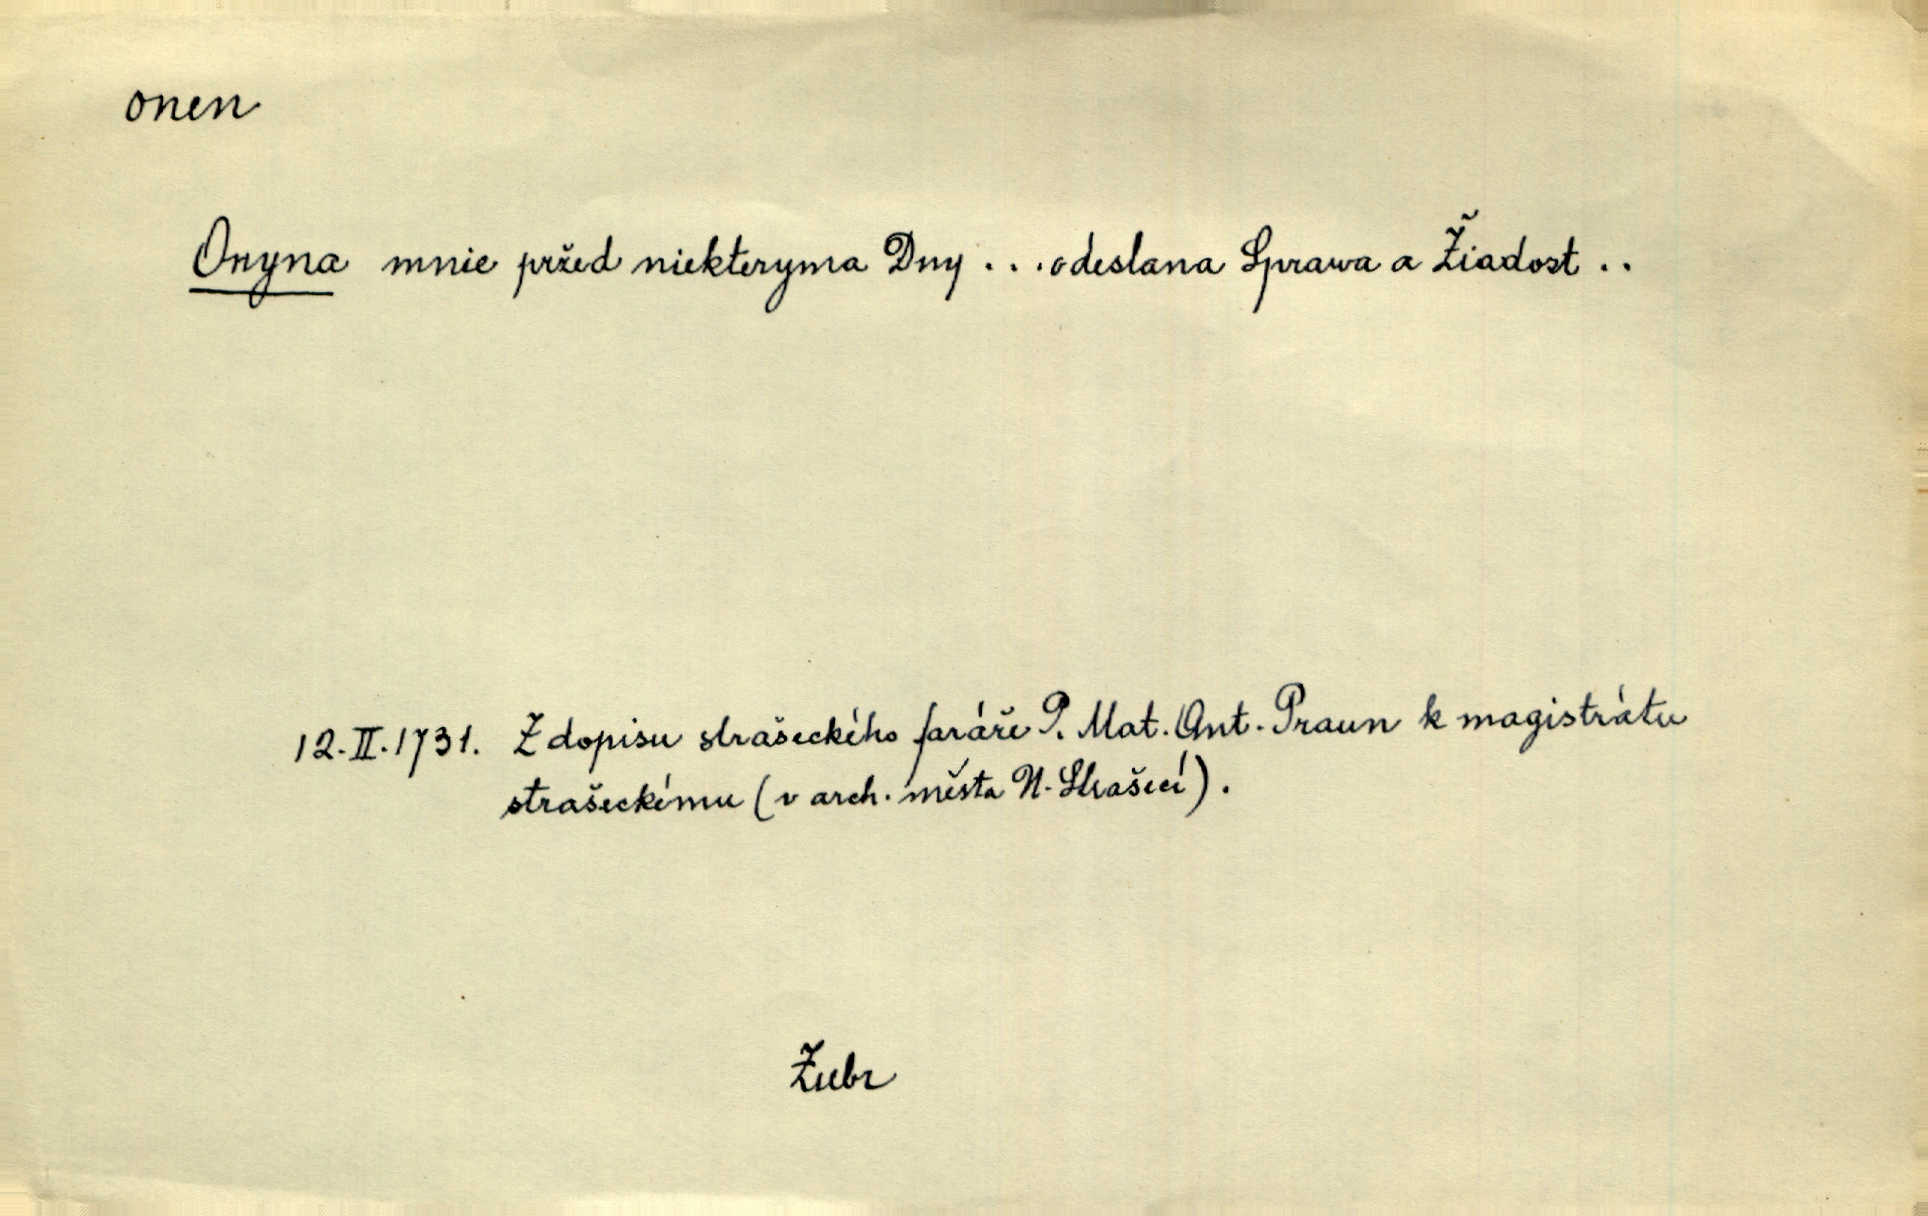 onen
Onyna mnie pržed niekteryma Dny . . . odeslana Sprawa a Žiadost . .
12. II. 1731. Z dopisu strašeckého faráře P. Mat. Ant. Praun k magistrátu
strašeckému (v arch. města N. Strašecí).
Žubr